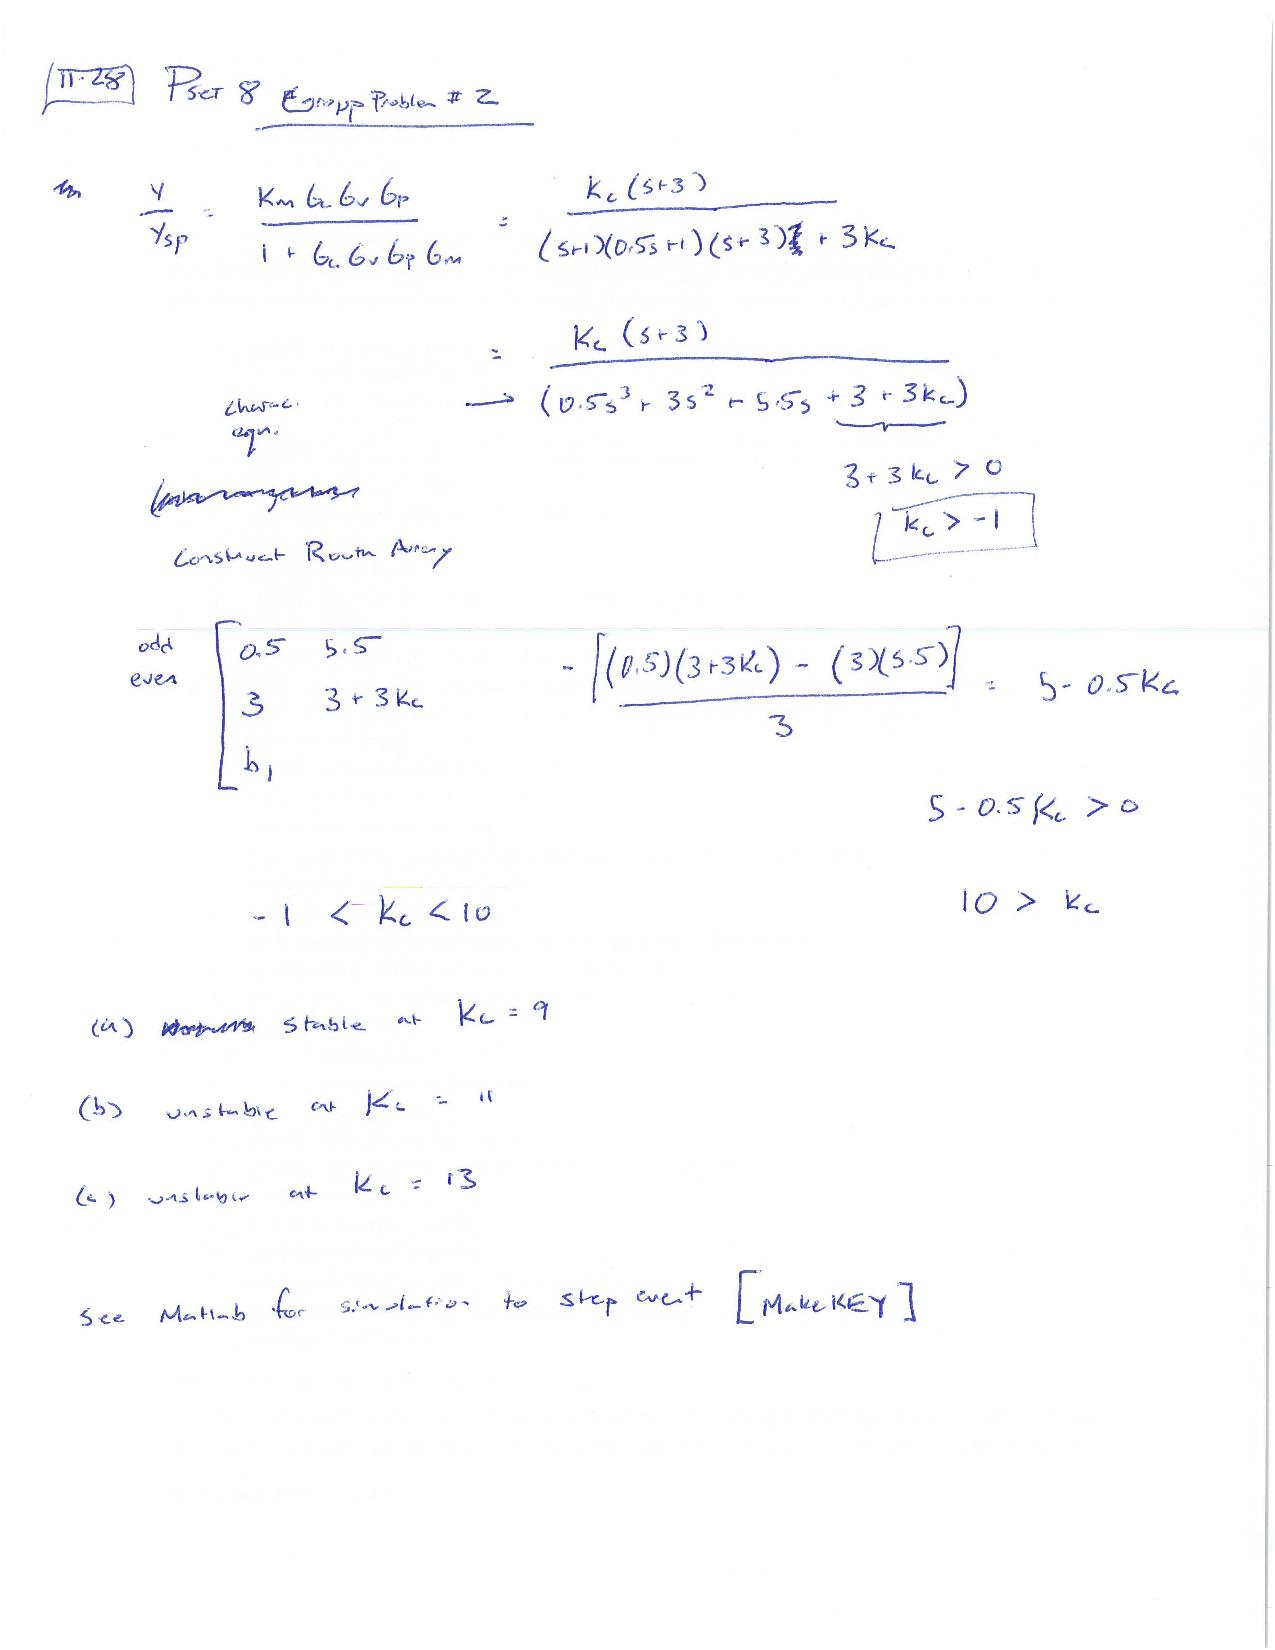 II-258 Pset 8 Group Problem # 2
Y/Ysp = Km Gc Gv Gp / 1 + Gc Gv Gp Gm = Kc (s+3) / (s+1)(0.5s+1)(s+3) + 3Kc
= Kc (s+3) / (0.5s³ + 3s² + 5.5s + 3 + 3Kc)
charac. eqn. →
3 + 3Kc > 0
Kc > -1
Construct Routh Array
odd 0.5 5.5
even 3 3 + 3Kc
b1
- [(0.5)(3+3Kc) - (3)(5.5)] / 3 = 5 - 0.5Kc
5 - 0.5Kc > 0
-1 < Kc < 10
10 > Kc
(a) stable at Kc = 9
(b) unstable at Kc = 11
(c) unstable at Kc = 13
See Matlab for simulation to step event [Make KEY]